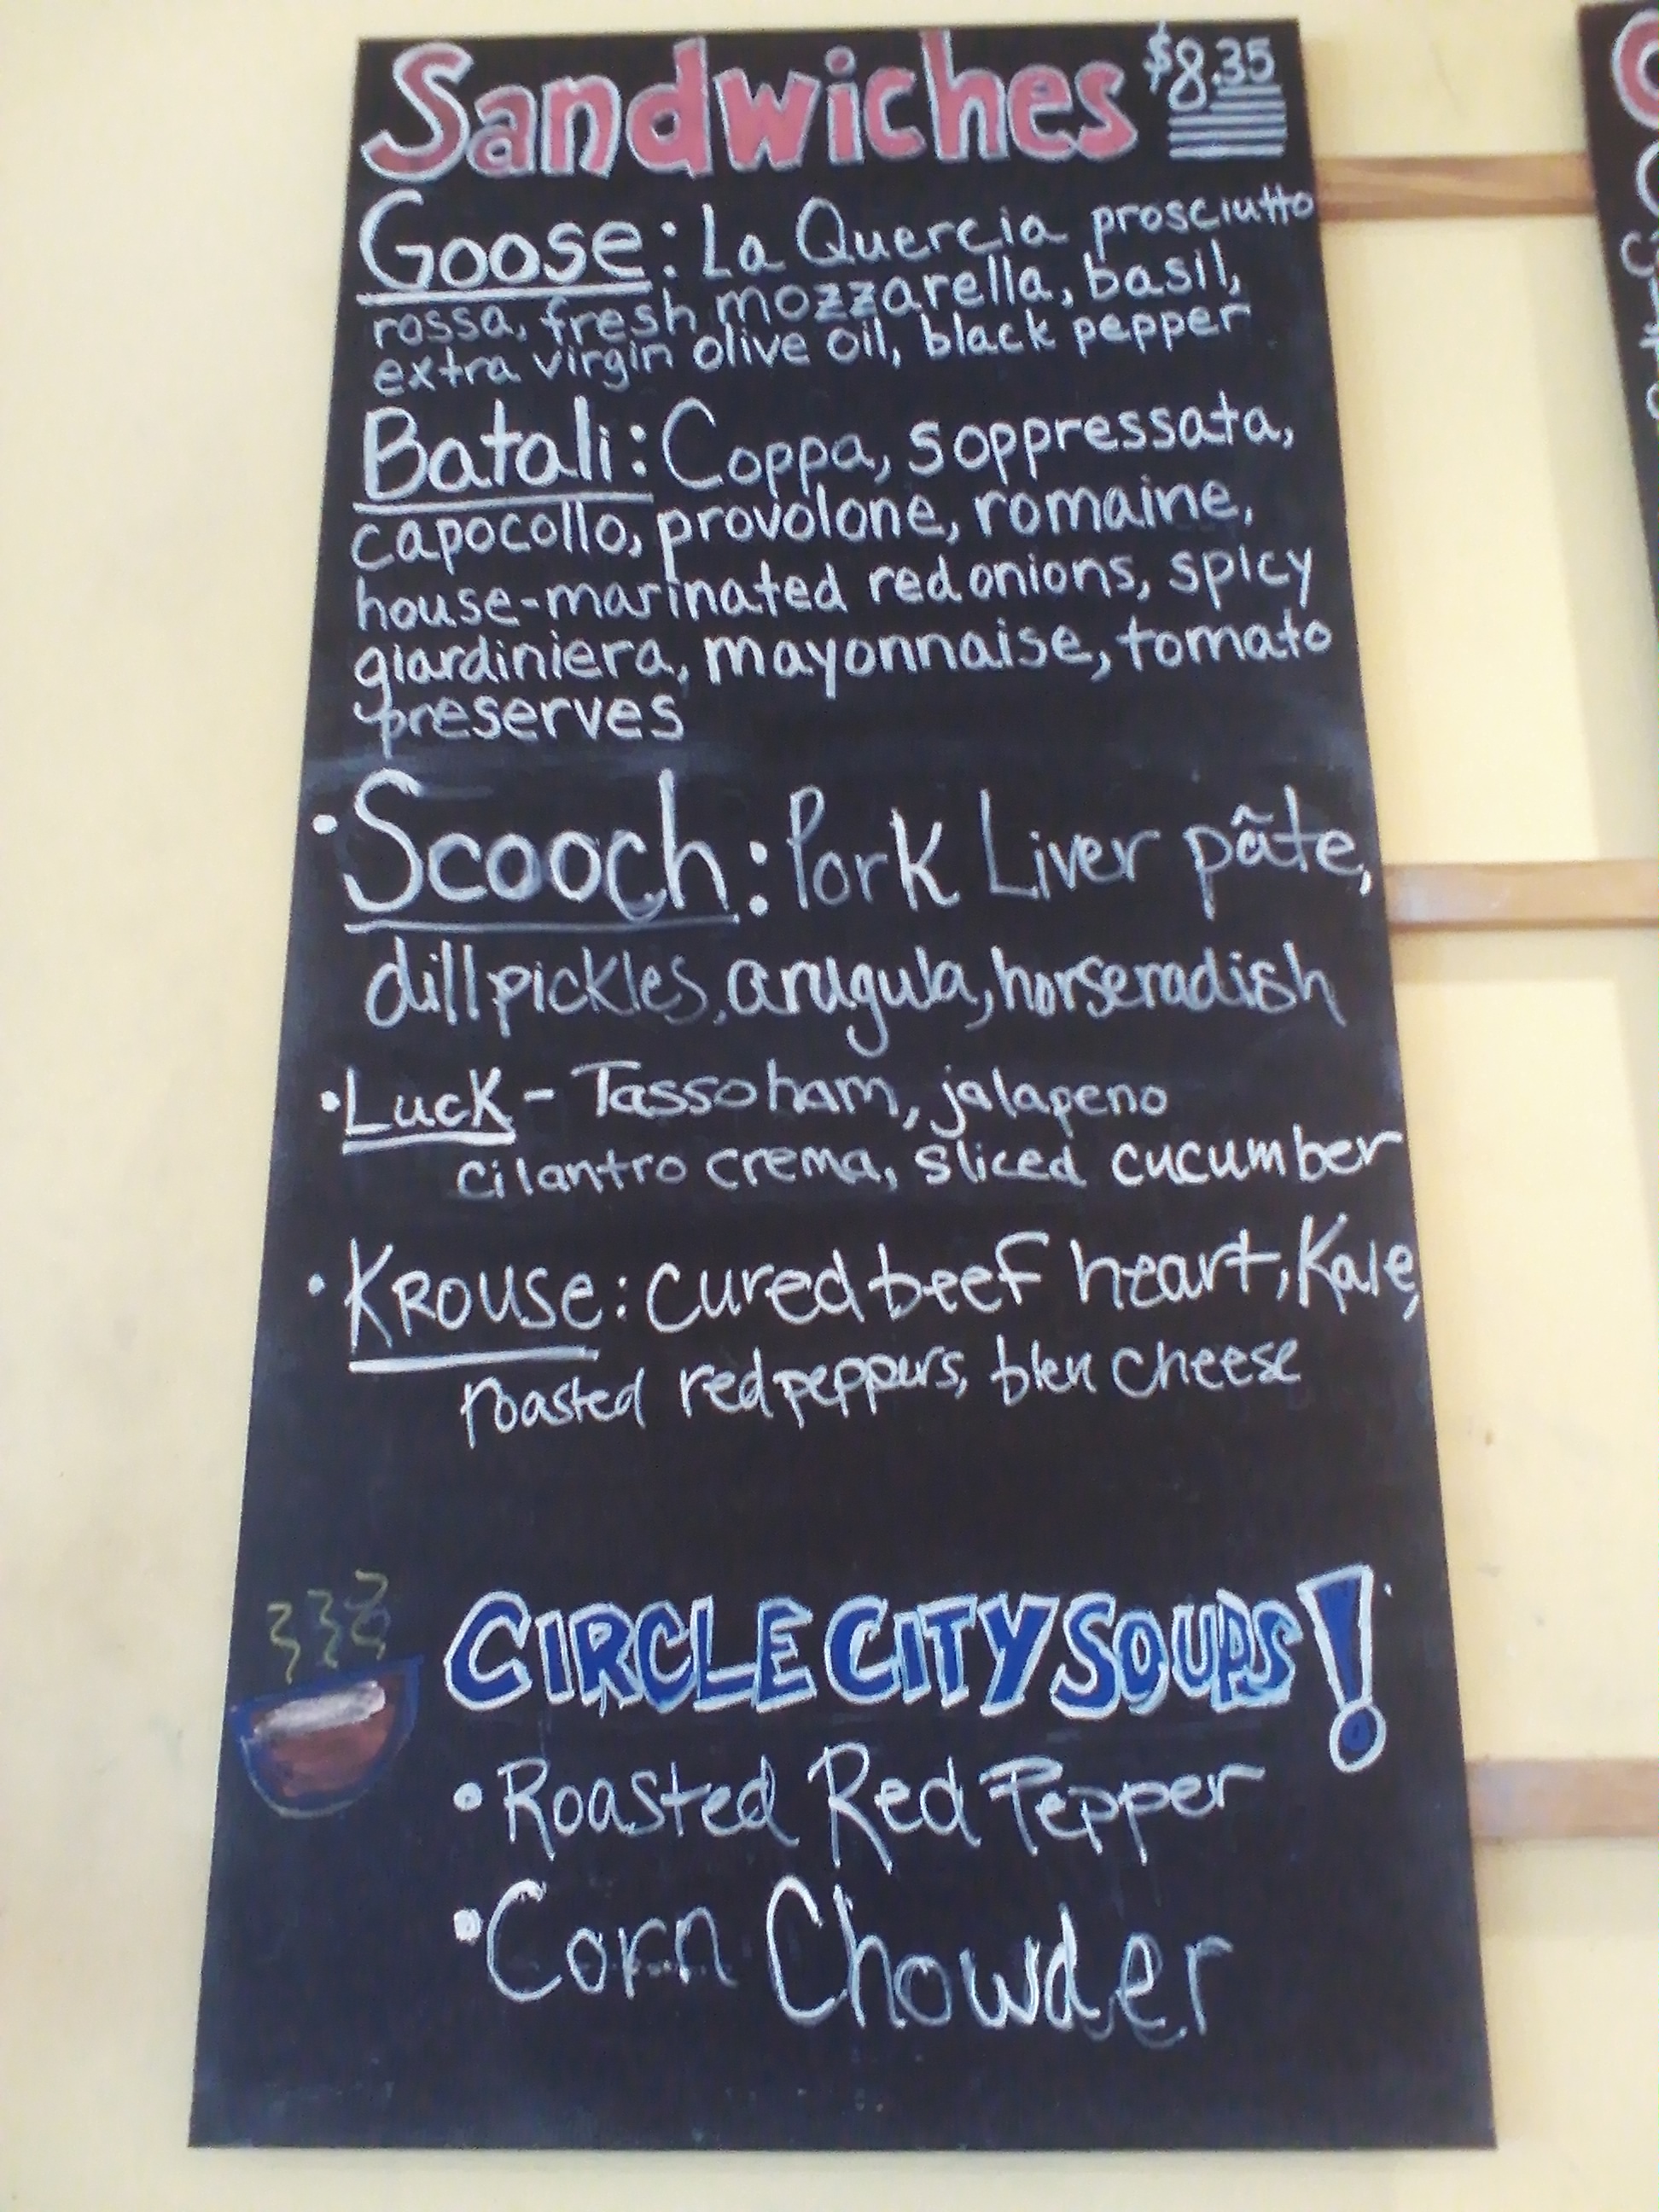 Sandwiches $8.35
Goose: La Quercia prosciutto
rossa, fresh mozzarella, basil,
extra virgin olive oil, black pepper
Batali: Coppa, soppressata,
capocollo, provolone, romaine,
house-marinated red onions, spicy
giardiniera, mayonnaise, tomato
preserves
•Scooch: Pork Liver pãte,
dill pickles, arugula, horseradish
•Luck - Tasso ham, jalapeno
cilantro crema, sliced cucumber
•Krouse: cured beef heart, Kale,
roasted red peppers, bleu cheese
CIRCLE CITY SOUPS!
•Roasted Red Pepper
•Corn Chowder